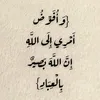 {وَأُفَوِّضُ
أَمْرِي إِلَى اللَّهِ
إِنَّ اللَّهَ بَصِيرٌ
بِالْعِبَادِ}